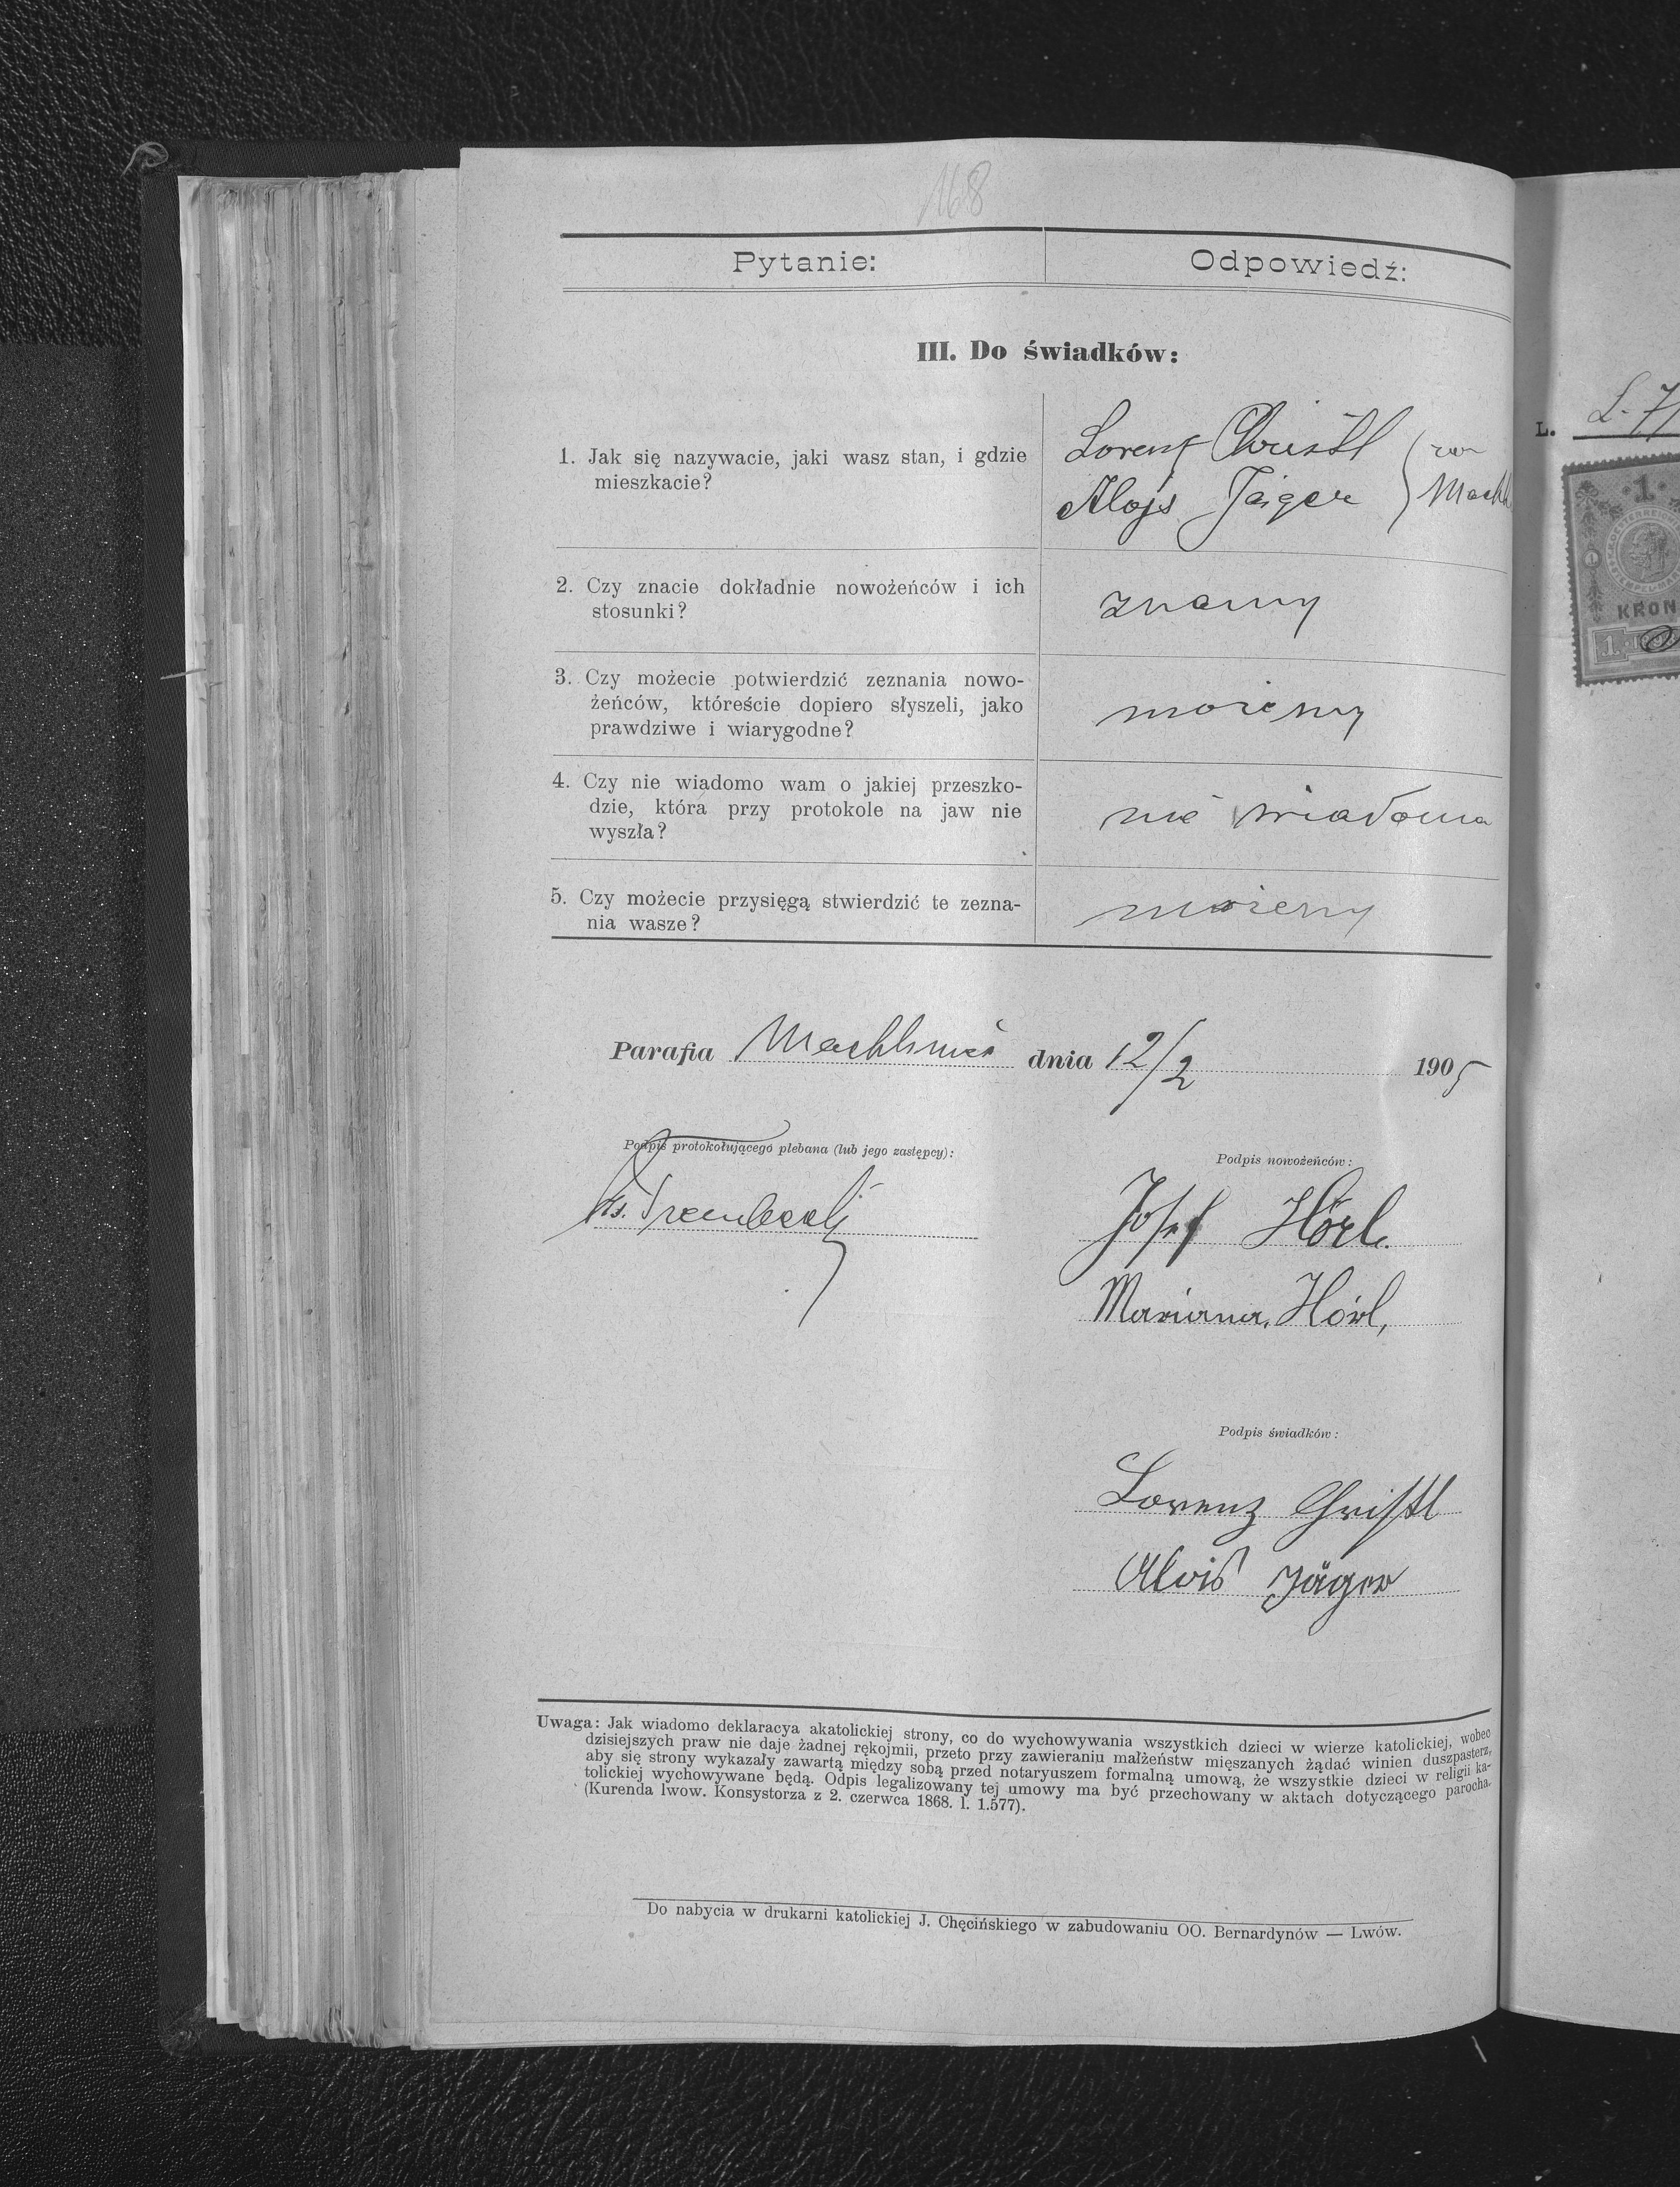 168
Pytanie: Odpowiedź:
III. Do świadków:
1. Jak się nazywacie, jaki wasz stan, i gdzie
mieszkacie?
Lorenz Christl
Alojs Jäger
2. Czy znacie dokładnie nowożeńców i ich
stosunki?
znamy
3. Czy możecie potwierdzić zeznania nowo-
żeńców, któreście dopiero słyszeli, jako
prawdziwe i wiarygodne?
możemy
4. Czy nie wiadomo wam o jakiej przeszko-
dzie, która przy protokole na jaw nie
wyszła?
nie wiadomo
5. Czy możecie przysięgą stwierdzić te zezna-
nia wasze?
możemy
Parafia Machliniec dnia 12/2 1905
Podpis protokołującego plebana (lub jego zastępcy):
Ks.
Podpis nowożeńców:
Josef Hörl.
Mariana, Hörl,
Podpis świadków:
Lorenz Christl
Alois Jäger
Uwaga: Jak wiadomo deklaracya akatolickiej strony, co do wychowywania wszystkich dzieci w wierze katolickiej, wobec
dzisiejszych praw nie daje żadnej rękojmii, przeto przy zawieraniu małżeństw mięszanych żądać winien duszpasterz,
aby się strony wykazały zawartą między sobą przed notaryuszem formalną umową, że wszystkie dzieci w religii ka-
tolickiej wychowywane będą. Odpis legalizowany tej umowy ma być przechowany w aktach dotyczącego parocha.
(Kurenda lwow. Konsystorza z 2. czerwca 1868. l. 1.577).
Do nabycia w drukarni katolickiej J. Chęcińskiego w zabudowaniu OO. Bernardynów — Lwów.
L.
1
KRON